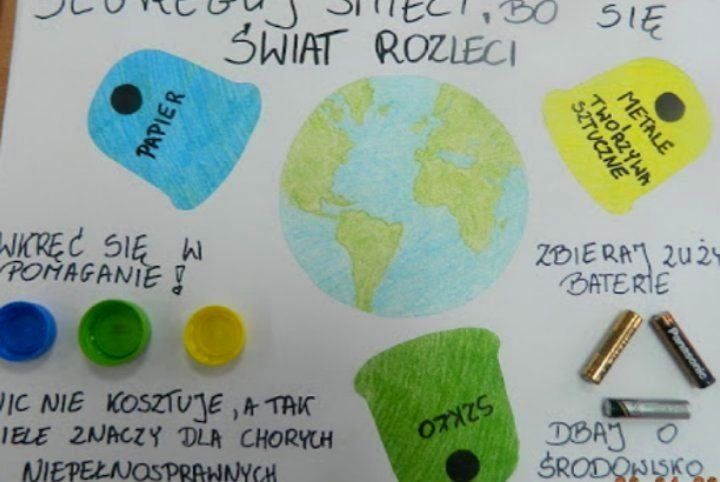 SEGREGUJ ŚMIECI, BO SIĘ
ŚWIAT ROZLECI
PAPIER
METALE
TWORZYWA
SZTUCZNE
WKRĘĆ SIĘ W
POMAGANIE!
ZBIERAJ ZUŻY
BATERIE
Panasonic
NIC NIE KOSZTUJE, A TAK
WIELE ZNACZY DLA CHORYCH
NIEPEŁNOSPRAWNYCH
SZKŁO
DBAJ O
ŚRODOWISKO